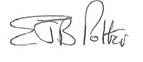 EJB Potter